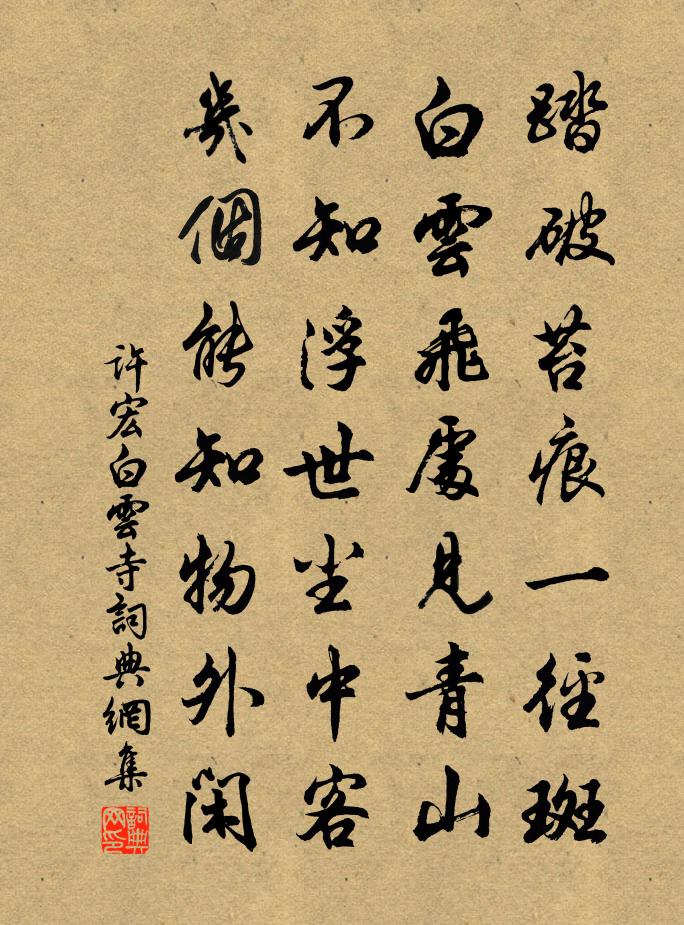 踏破苔痕一徑斑
白雲飛處見青山
不知浮世尘中客
幾個能知物外閑
許宏白雲寺詞典網集
詞典网印